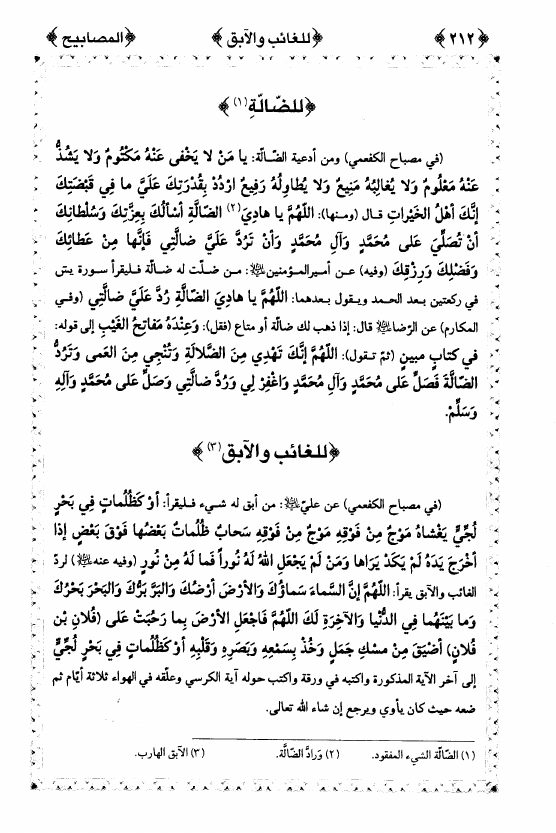 ﴿٢١٢﴾ ﴿للغائب والآبق﴾ ﴿المصابيح﴾
﴿للضّالّةِ (١)﴾
(في مصباح الكفعمي) ومن أدعية الضـالّة: يا مَنْ لا يَخْفى عَنْهُ مَكْتُومٌ وَلا يَشُذُّ
عَنْهُ مَعْلُومٌ وَلا يُغالِبُهُ مَنِيعٌ وَلا يُطاوِلُهُ رَفِيعٌ ارْدُدْ بِقُدْرَتِكَ عَلَيَّ ما فِي قَبْضَتِكَ
إنَّكَ أهْلُ الخَيْراتِ قـال (ومـنها): اللّهُمَّ يا هادِيَ (٢) الضّالَّةِ أسْألُكَ بِعِزَّتِكَ وَسُلْطانِكَ
أنْ تُصَلِّيَ عَلى مُحَمَّدٍ وَآلِ مُحَمَّدٍ وَأنْ تَرُدَّ عَلَيَّ ضالَّتِي فَإنَّها مِنْ عَطائِكَ
وَفَضْلِكَ وَرِزْقِكَ (وفيه) عـن أميرالمـؤمنين ﷺ: مـن ضـلّت له ضـالّة فـليقرأ سورة يسٓ
في ركعتين بـعد الحمد ويـقول بـعدهما: اللّهُمَّ يا هادِيَ الضّالَّةِ رُدَّ عَلَيَّ ضالَّتِي (وفـي
المكارم) عن الرّضا ﷺ قال: إذا ذهب لك ضالّة أو متاع (فقل): وَعِنْدَهُ مَفاتِحُ الغَيْبِ إلى قوله:
في كتابٍ مبينٍ (ثمّ تـقول): اللّهُمَّ إنَّكَ تَهْدِي مِنَ الضَّلالَةِ وَتُنْجِي مِنَ العَمى وَتَرُدُّ
الضّالَّةَ فَصَلِّ عَلى مُحَمَّدٍ وَآلِ مُحَمَّدٍ وَاغْفِرْ لِي وَرُدَّ ضالَّتِي وَصَلِّ عَلى مُحَمَّدٍ وَآلِهِ
وَسَلِّمْ.
﴿للغائب والآبق (٣)﴾
(في مصباح الكفعمي) عن عليّ ﷺ: من أبق له شـيء فـليقرأ: أوْ كَظُلُماتٍ فِي بَحْرٍ
لُجِّيٍّ يَغْشاهُ مَوْجٌ مِنْ فَوْقِهِ مَوْجٌ مِنْ فَوْقِهِ سَحابٌ ظُلُماتٌ بَعْضُها فَوْقَ بَعْضٍ إذا
أخْرَجَ يَدَهُ لَمْ يَكَدْ يَراها وَمَنْ لَمْ يَجْعَلِ اللهُ لَهُ نُوراً فَما لَهُ مِنْ نُورٍ (وفيه عنه ﷺ) لردّ
الغائب والآبق يقرأ: اللّهُمَّ إنَّ السَّماءَ سَماؤُكَ وَالأرْضَ أرْضُكَ وَالبَرَّ بَرُّكَ وَالبَحْرَ بَحْرُكَ
وَما بَيْنَهُما فِي الدُّنْيا وَالآخِرَةِ لَكَ اللّهُمَّ فَاجْعَلِ الأرْضَ بِما رَحُبَتْ عَلى (فُلانِ بْنِ
فُلانٍ) أضْيَقَ مِنْ مسْكِ جَمَلٍ وَخُذْ بِسَمْعِهِ وَبَصَرِهِ وَقَلْبِهِ أوْ كَظُلُماتٍ فِي بَحْرٍ لُجِّيٍّ
إلى آخر الآية المذكورة واكتبه في ورقة واكتب حوله آية الكرسي وعلّقه في الهواء ثلاثة أيّام ثم
ضعه حيث كان يأوي ويرجع إن شاء الله تعالى.
(١) الضّالّة الشيء المفقود. (٢) وَرادَّ الضّالَّة. (٣) الآبق الهارب.